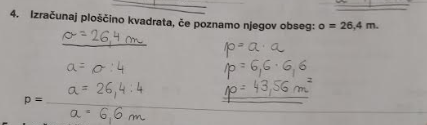 4. Izračunaj ploščino kvadrata, če poznamo njegov obseg: o = 26,4 m.
o = 26,4 m
a = o : 4
a = 26,4 : 4
p =
a = 6,6 m
p = a · a
p = 6,6 · 6,6
p = 43,56 m²